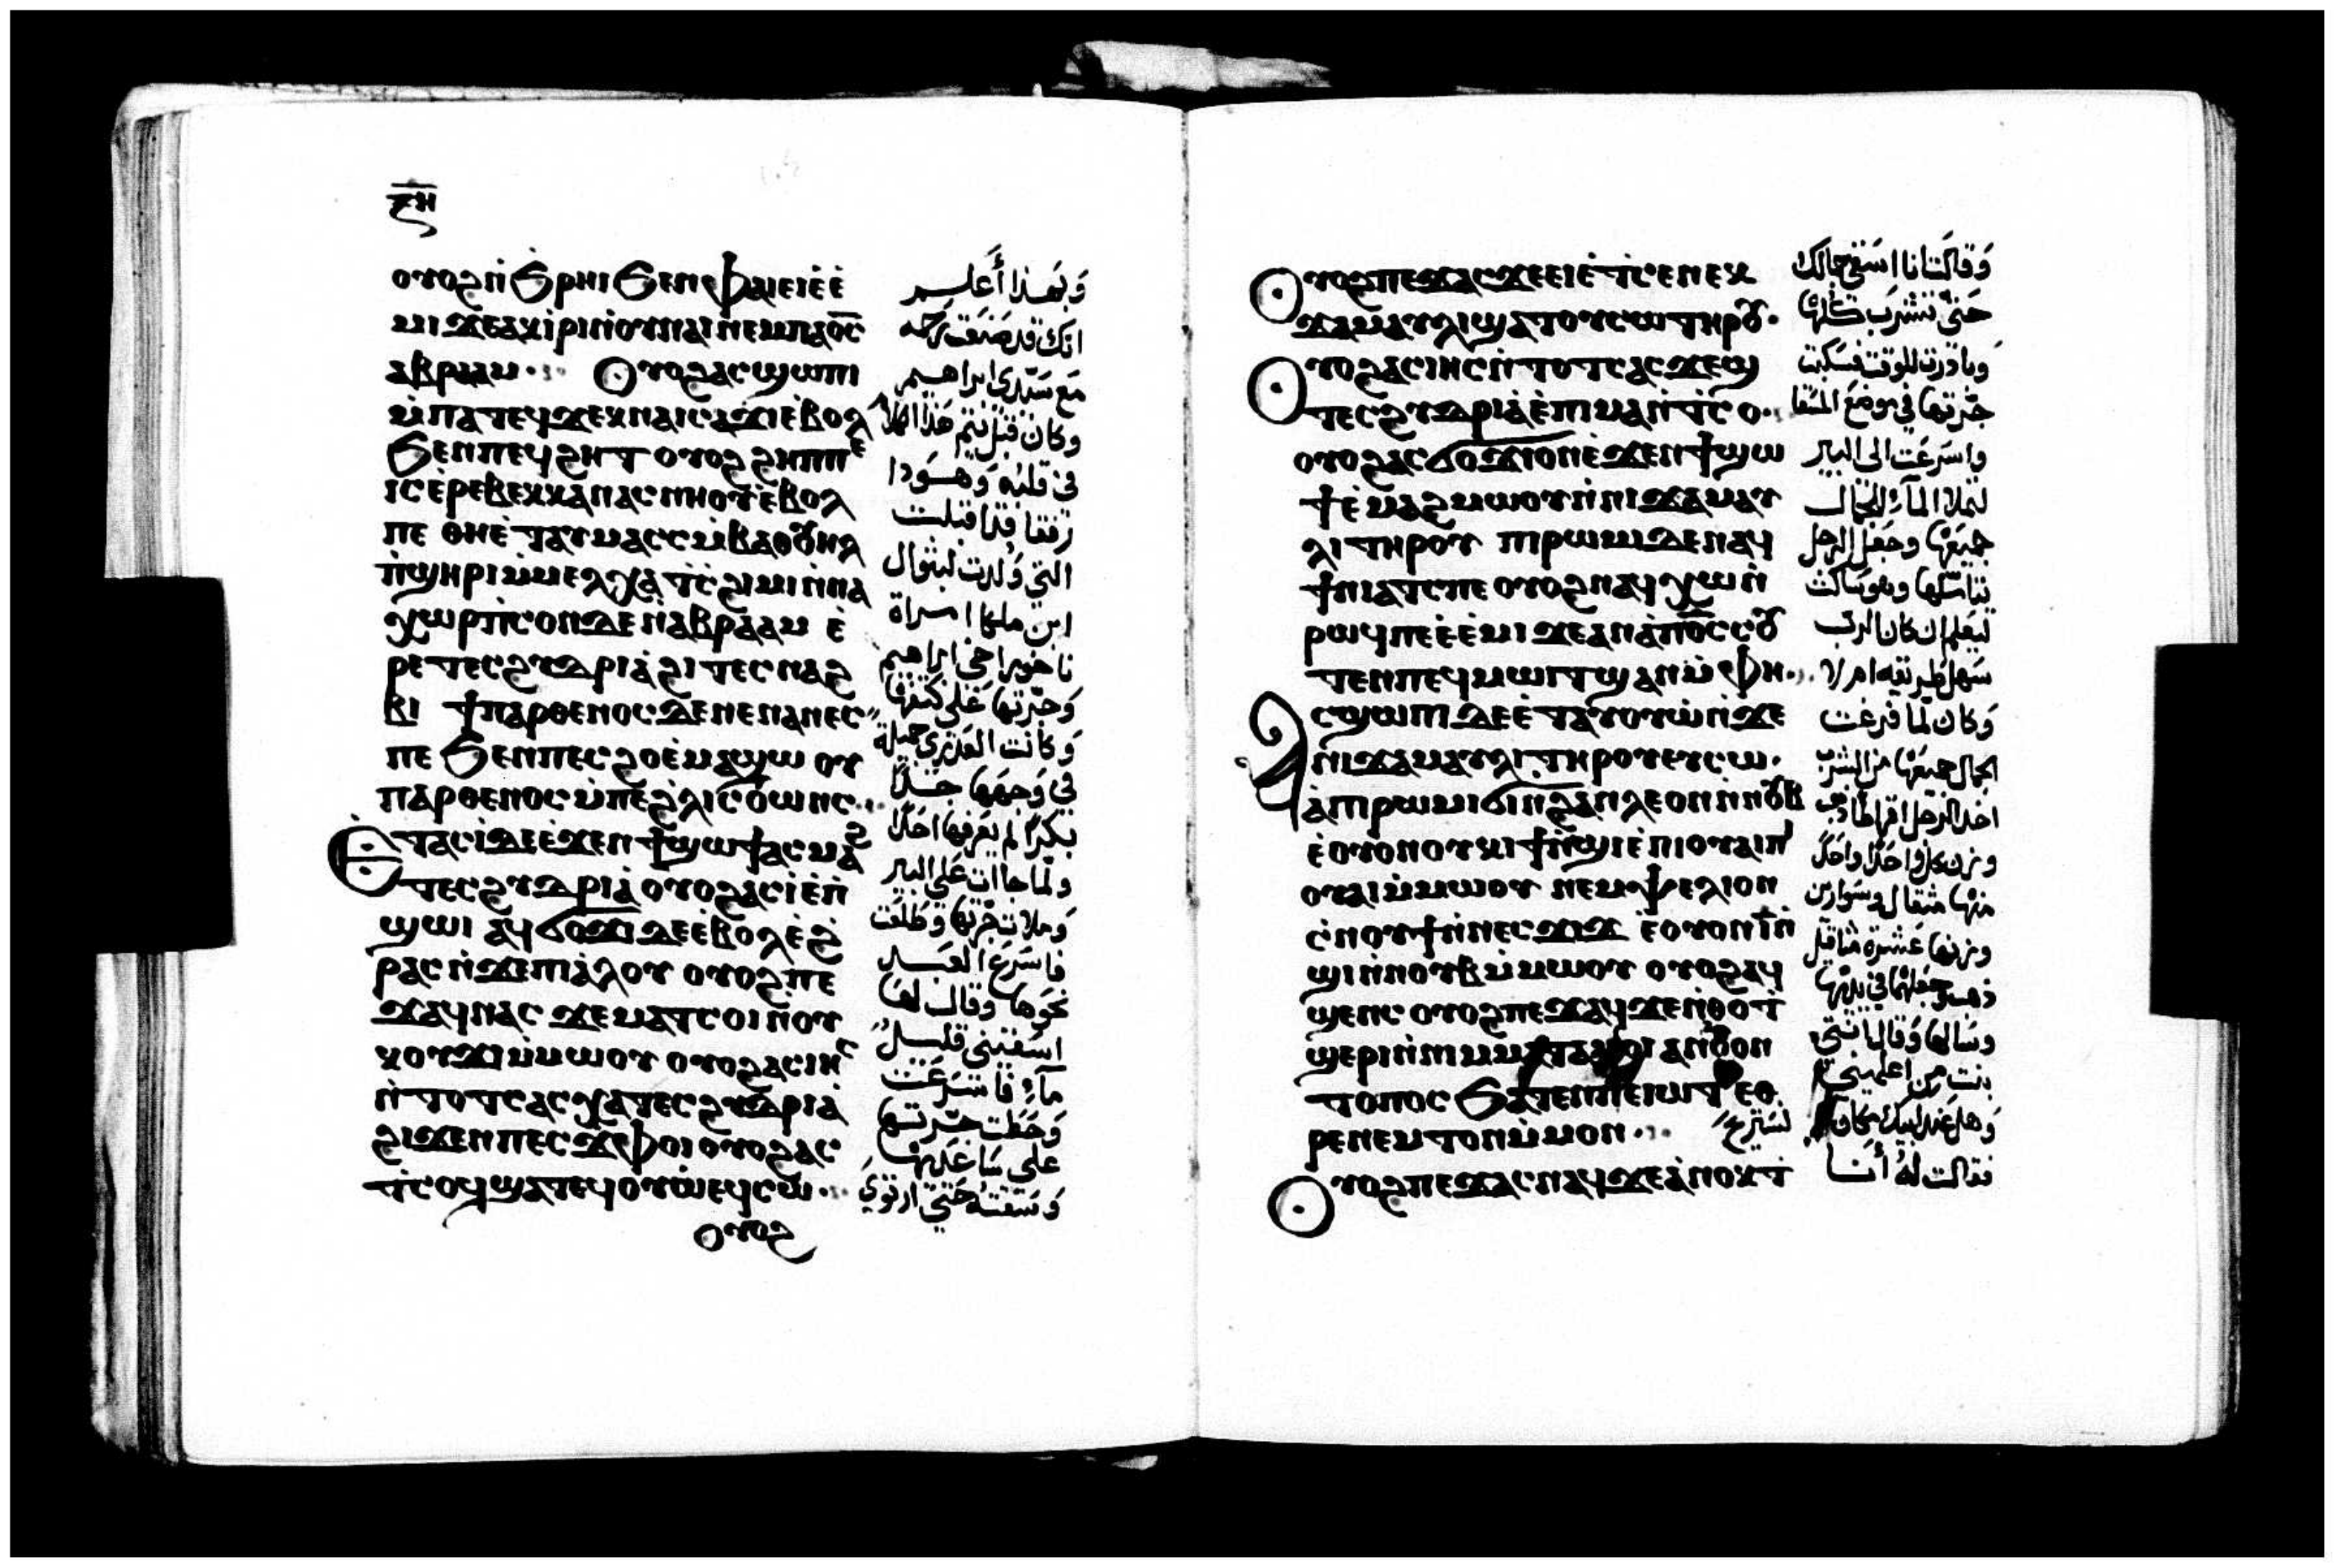 ⲝⲏ
ⲟⲩⲟϩ ⲛ̀ϧⲣⲏⲓ ϧⲉⲛ ⲫⲁⲓ ⲉⲓⲉ̀ⲉ̀
ⲙⲓ ϫⲉ ⲁⲕⲓⲣⲓ ⲛ̀ⲟⲩⲛⲁⲓ ⲛⲉⲙ ⲡⲁⲟ̅ⲥ̅
ⲁⲃⲣⲁⲁⲙ ⲟⲩⲟϩ ⲁⲥϣⲱⲡⲓ
ⲙ̀ⲡⲁⲧⲉϥϫⲉⲕ ⲛⲁⲓⲥⲁϫⲓ ⲉ̀ⲃⲟⲗ
ϧⲉⲛ ⲡⲉϥϩⲏⲧ ⲟⲩⲟϩ ϩⲏⲡⲡⲉ
ⲓⲥ ⲉ̀ⲣⲉⲃⲉⲕⲕⲁ ⲛⲁⲥⲛⲏⲟⲩ ⲉ̀ⲃⲟⲗ
ⲡⲉ ⲑⲏ ⲉ̀ⲧⲁⲩⲙⲁⲥⲥ ⲙ̀ⲃⲁⲑⲟⲩⲏⲗ
ⲡ̀ϣⲏⲣⲓ ⲙ̀ⲙⲉⲗⲭⲁ ⲧ̀ⲥϩⲓⲙⲓ ⲛ̀ⲛⲁ
ⲭⲱⲣ ⲡ̀ⲥⲟⲛ ⲇⲉ ⲛ̀ⲁⲃⲣⲁⲁⲙ ⲉ̀
ⲣⲉ ⲧⲉⲥϩⲩⲇⲣⲓⲁ̀ ϩⲓ ⲧⲉⲥⲛⲁϩ
ⲃⲓ ϯⲡⲁⲣⲑⲉⲛⲟⲥ ⲇⲉ ⲛⲉ ⲛⲁⲛⲉⲥ
ⲡⲉ ϧⲉⲛ ⲡⲉⲥϩⲟ ⲉ̀ⲙⲁϣⲱ ⲟⲩ
ⲡⲁⲣⲑⲉⲛⲟⲥ ⲙ̀ⲡⲉϩⲗⲓ ⲥⲟⲩⲱⲛⲥ
ⲉ̀ⲧⲁⲥⲓ̀ ⲇⲉ ⲉ̀ϫⲉⲛ ϯϣⲱϯ ⲁⲥⲙⲁϩ
ⲧⲉⲥϩⲩⲇⲣⲓⲁ̀ ⲟⲩⲟϩ ⲁⲥⲓ̀ ⲉ̀ⲡ̀
ϣⲱⲓ ⲁϥϭⲟϫⲓ ⲇⲉ ⲉ̀ⲃⲟⲗ ⲉ̀ϩ̀
ⲣⲁⲥ ⲛ̀ϫⲉ ⲡⲓⲁ̀ⲗⲟⲩ ⲟⲩⲟϩ ⲡⲉ
ϫⲁϥ ⲛⲁⲥ ϫⲉ ⲙⲁⲧⲥⲟⲓ ⲛ̀ⲟⲩ
ⲕⲟⲩϫⲓ ⲙ̀ⲙⲱⲟⲩ ⲟⲩⲟϩ ⲁⲥⲓⲏⲥ
ⲛ̀ⲧⲟⲧⲥ ⲁⲥⲭⲁ ⲧⲉⲥϩⲩⲇⲣⲓⲁ̀
ϩⲓϫⲉⲛ ⲡⲉⲥϫⲫⲟⲓ ⲟⲩⲟϩ ⲁⲥ
ⲧ̀ⲥⲟϥ ϣⲁⲧⲉϥⲟⲩⲱ̀ ⲉϥⲥⲱ
ⲟⲩⲟϩ
وَبهَذا أعلم
انك قد صنعت رحمه
مَع سَيّدى ابراهيم
وكان قبل يتم هذا الكلام
فى قلبه وَهوذا
رفقا قد اقبلت
التى وُلدت لبثوال
ابن ملها امراة
ناخورا خى ابراهيم
وَجرّتها عَلى كتفها
وَكانت العَذرى جميلة
فى وَجهها جدًا
بكرًا لم يعرفها احدًا
ولمّا جاات عَلى البير
وَملات جرّتها وَطلعَت
فاسرَع العَبد
نحوَها وَقال لهَا
اسقينى قليل
مآء فاسرَعَت
وَحَطت جرّتها
على سَاعَديها
وَسَقتهُ حَتى ارتوى
ⲟⲩⲟϩ ⲡⲉϫⲁⲥ ϫⲉ ⲉⲓⲉ̀ⲧ̀ⲥⲉ ⲛⲉⲕ
ϫⲁⲙⲁⲩⲗⲓ ϣⲁⲧⲟⲩⲥⲱ ⲧⲏⲣⲟⲩ
ⲟⲩⲟϩ ⲁⲥⲓⲏⲥ ⲛ̀ⲧⲟⲧⲥ ⲁⲥϫⲉϣ
ⲧⲉⲥϩⲩⲇⲣⲓⲁ̀ ⲉ̀ⲡⲓⲙⲁⲛ̀ⲧ̀ⲥⲟ
ⲟⲩⲟϩ ⲁⲥϭⲟϫⲓ ⲟⲛ ⲉ̀ϫⲉⲛ ϯϣⲱ
ϯ ⲉ̀ⲙⲁϩ ⲙⲱⲟⲩ ⲛ̀ⲛⲓϫⲁⲙⲁⲩ
ⲗⲓ ⲧⲏⲣⲟⲩ ⲡⲓⲣⲱⲙⲓ ⲇⲉ ⲛⲁϥ
ϯⲛⲓⲁⲧⲥ ⲡⲉ ⲟⲩⲟϩ ⲛⲁϥⲭⲱ ⲛ̀
ⲣⲱϥ ⲡⲉ ⲉ̀ⲉ̀ⲙⲓ ϫⲉ ⲁⲛ ⲁ̀ⲡ̅ⲟ̅ⲥ̅ ⲥⲟⲩ
ⲧⲉⲛ ⲡⲉϥⲙⲱⲓⲧ ϣⲁⲛ ⲙ̀ⲫⲏ
ⲁⲥϣⲱⲡⲓ ⲇⲉ ⲉ̀ⲧⲁⲩⲟⲩⲱ̀ ⲛ̀ϫⲉ
ⲛⲓϫⲁⲙⲁⲩⲗⲓ ⲧⲏⲣⲟⲩ ⲉⲩⲥⲱ
ⲁ̀ⲡⲓⲣⲱⲙⲓ ϭⲓ ⲛ̀ϩⲁⲛⲗⲉⲟⲛ ⲛ̀ⲛⲟⲩⲃ
ⲉ̀ⲟⲩⲟⲛ ⲟⲩⲕⲓϯ ⲛ̀ϣⲓ ⲉ̀ⲡⲓⲟⲩⲁⲓ ⲡ̀
ⲟⲩⲁⲓ ⲙ̀ⲙⲱⲟⲩ ⲛⲉⲙ ⲯⲉⲗⲓⲟⲛ
ⲥ̀ⲛⲟⲩϯ ⲛ̀ⲛⲉⲥϫⲓϫ ⲉ̀ⲟⲩⲟⲛ ⲓ̅ ⲛ̀
ϣⲓ ⲛ̀ⲛⲟⲩⲃ ⲙ̀ⲙⲱⲟⲩ ⲟⲩⲟϩ ⲁϥ
ϣⲉⲛⲥ ⲟⲩⲟϩ ⲡⲉϫⲁϥ ϫⲉ ⲛ̀ⲑⲟ ⲧ̀
ϣⲉⲣⲓ ⲛ̀ⲛⲓⲙ ⲙⲁⲧⲁⲙⲟⲓ ⲁⲛ ⲟⲩⲟⲛ
ⲧⲟⲡⲟⲥ ϧⲁⲧⲉⲛ ⲡⲉⲓⲱⲧ ⲉⲑ
ⲣⲉⲛⲉⲙⲧⲟⲛ ⲙ̀ⲙⲟⲛ
ⲟⲩⲟϩ ⲡⲉϫⲁⲥ ⲛⲁϥ ϫⲉ ⲁ̀ⲛⲟⲕ ⲧ̀
وَقالت انا اسَقى جمالك
حَتى تشرَب كلها
وَبادرت للوقت فسكبت
جرّتها فى موضع المسقا
وَاسرَعَت الى البير
لتملا المآء للجمال
جميعَها وجعَل الرجل
يتاملها وهو سَاكت
ليعَلم ان كان الرب
سَهل طريقه ام لا
وَكان لمّا فرغت
الجمال جميعَها من الشرب
اخد الرَجل اقراط ذهب
وزن كل واحدًا واحدًا
منها مثقال وسوارين
وزنها عَشرة مثاقيل
ذهب وجعَلها فى يديها
وسَالها وَقال انتى
بنت من اعلمينى
وَهل عَند ابيك مكان
نستريح
فقالت لهُ أنا